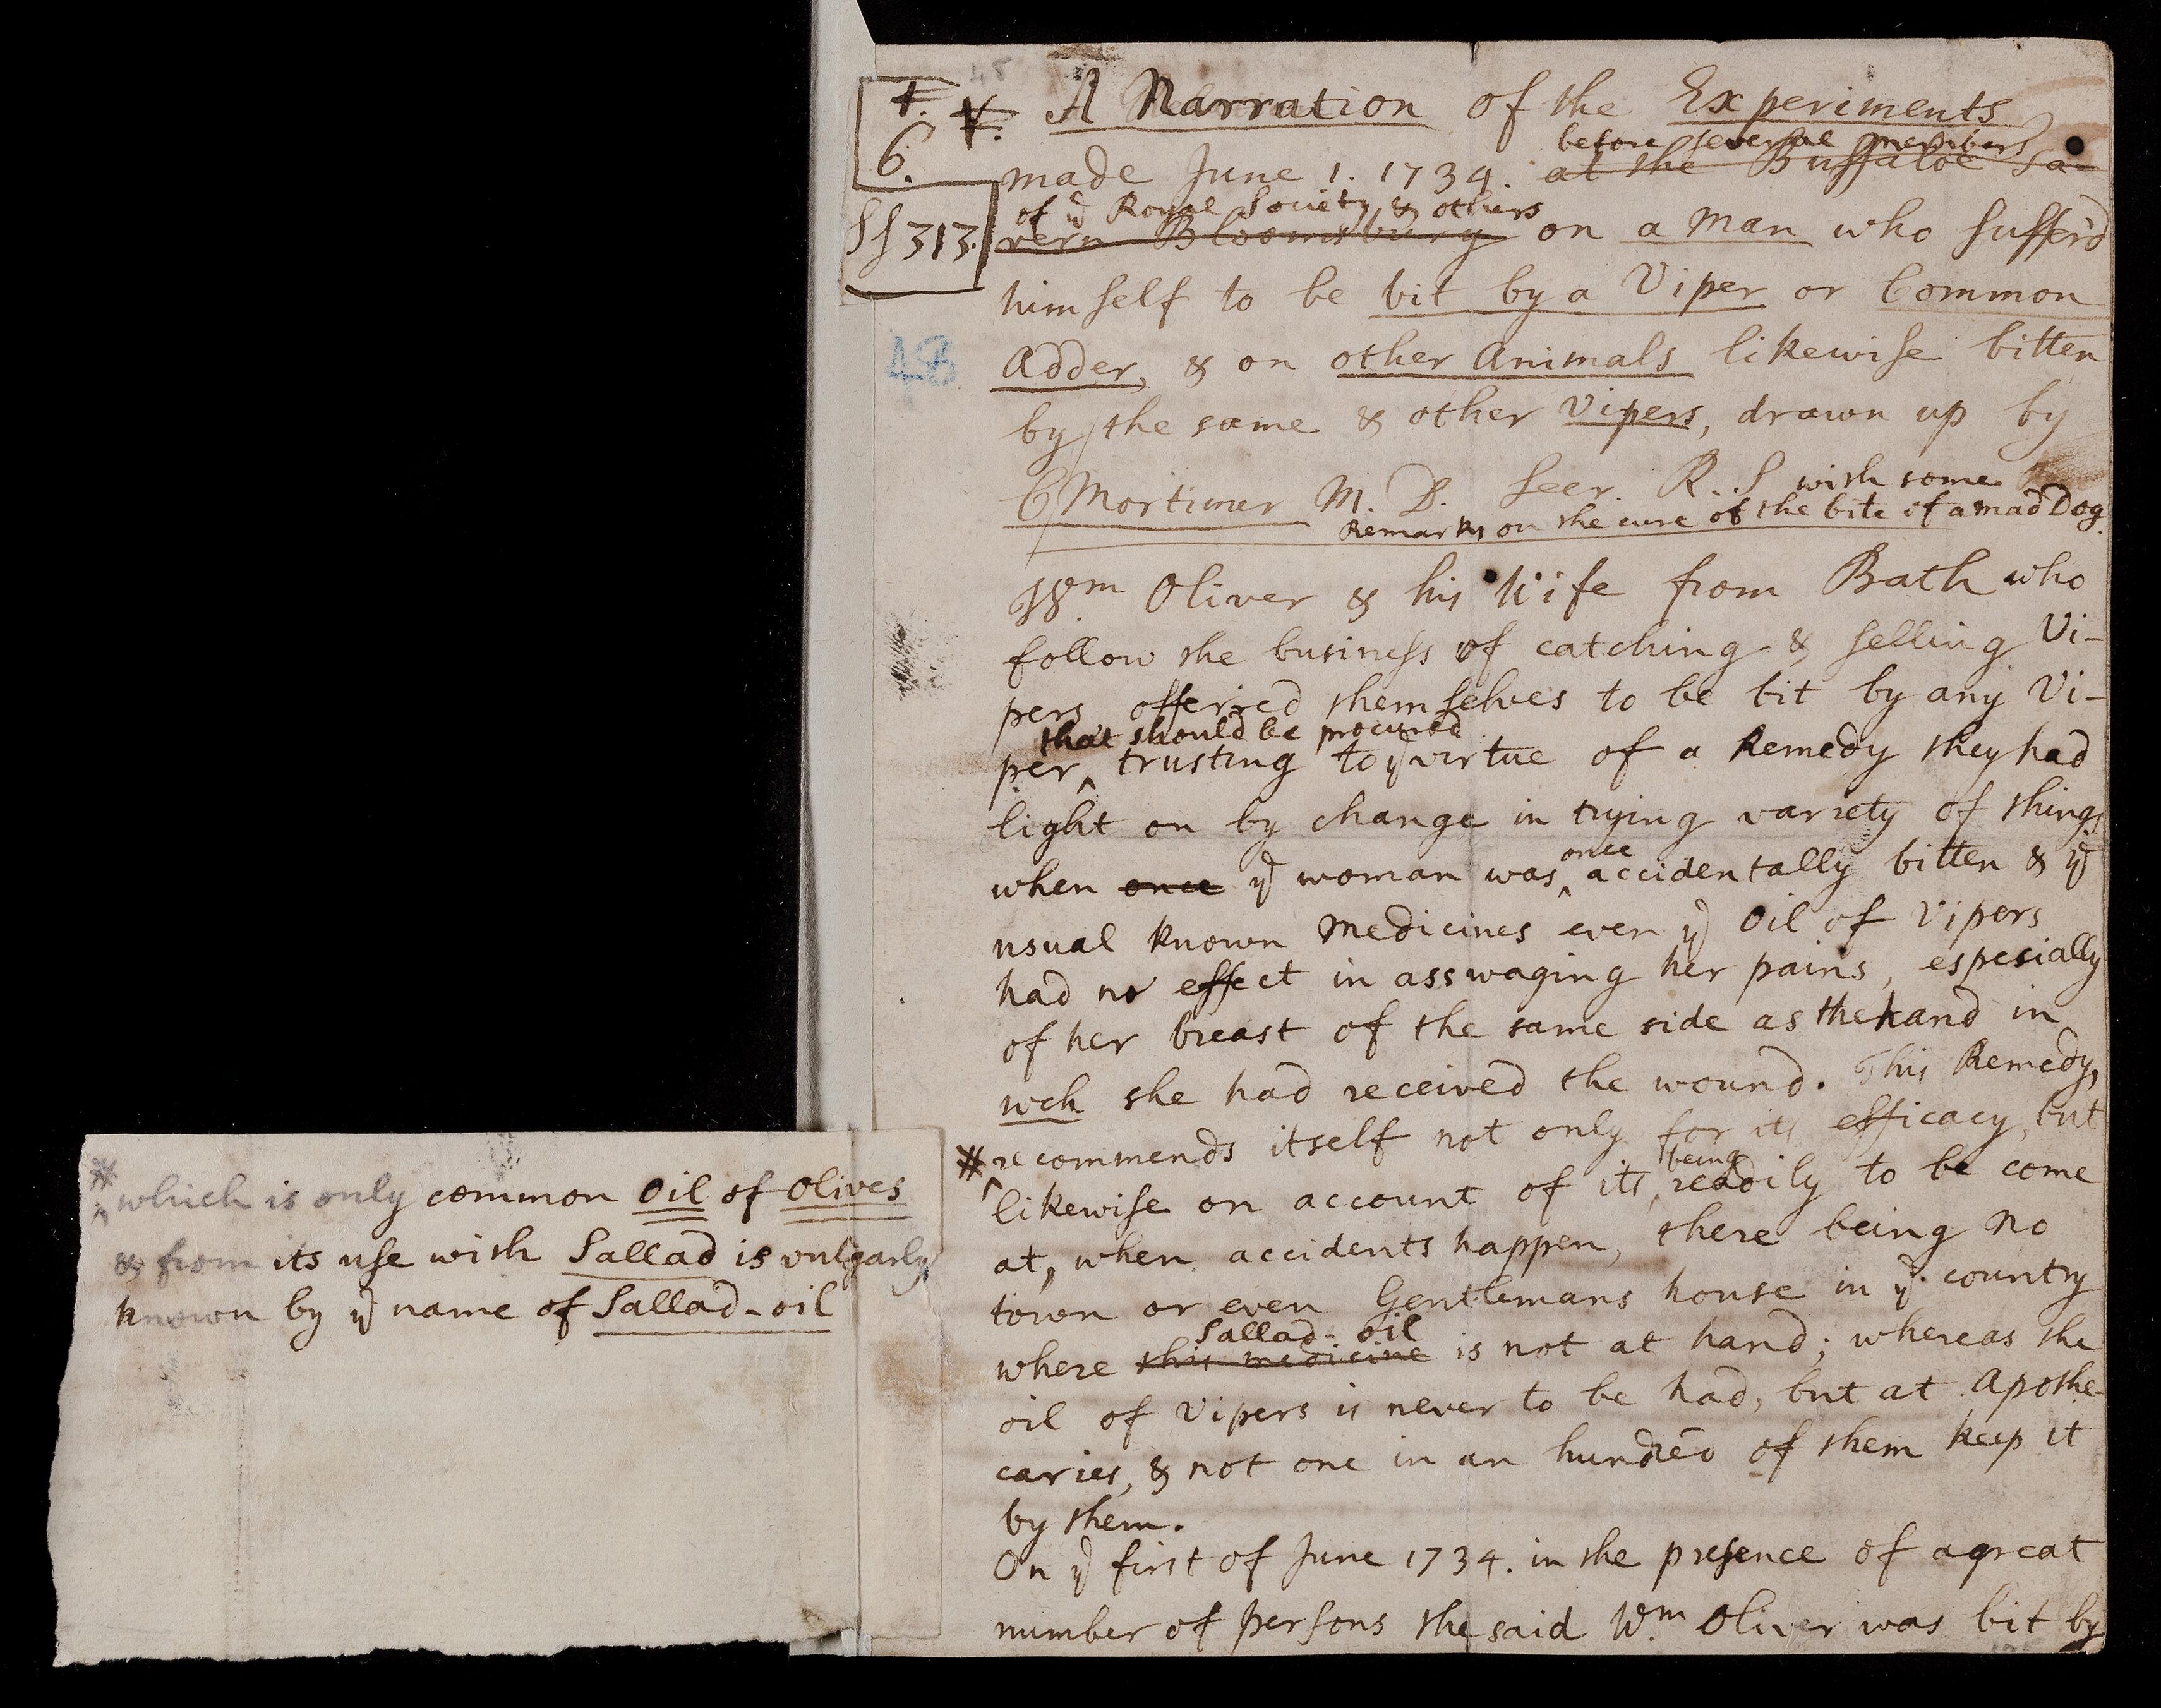 A Narration of the Experiments
before several members
made June 1. 1734. at the Buffaloe Ta-
of ye Royal Society & others
vern Bloomsbury on a Man who suffer'd
himself to be bit by a Viper or Common
Adder, & on other Animals likewise bitten
by the same & other Vipers, drawn up by
C Mortimer M. D. Secr. R. S with some
Remarks on the cure of the bite of a mad Dog.
Wm Oliver & his Wife from Bath who
follow the business of catching & selling Vi-
pers offerred themselves to be bit by any Vi-
that should be procured
per trusting to ye virtue of a Remedy they had
light on by change in trying variety of things
once
when once ye woman was accidentally bitten & ye
usual known Medicines even ye Oil of Vipers
had no effect in asswaging her pains, espesially
of her breast of the same side as the hand in
wch she had received the wound. This Remedy,
recommends itself not only for its efficacy, but
being
likewise on account of its readily to be come
at, when accidents happen, there being no
town or even Gentlemans house in ye country
Sallad-oil
where this medicine is not at hand; whereas the
oil of Vipers is never to be had, but at Apothe-
caries, & not one in an hundred of them keep it
by them.
On ye first of June 1734. in the presence of a great
number of persons the said Wm Oliver was bit by
6.
SS 313.
AB
which is only common Oil of Olives
& from its use with Sallad is vulgarly
known by ye name of Sallad-oil